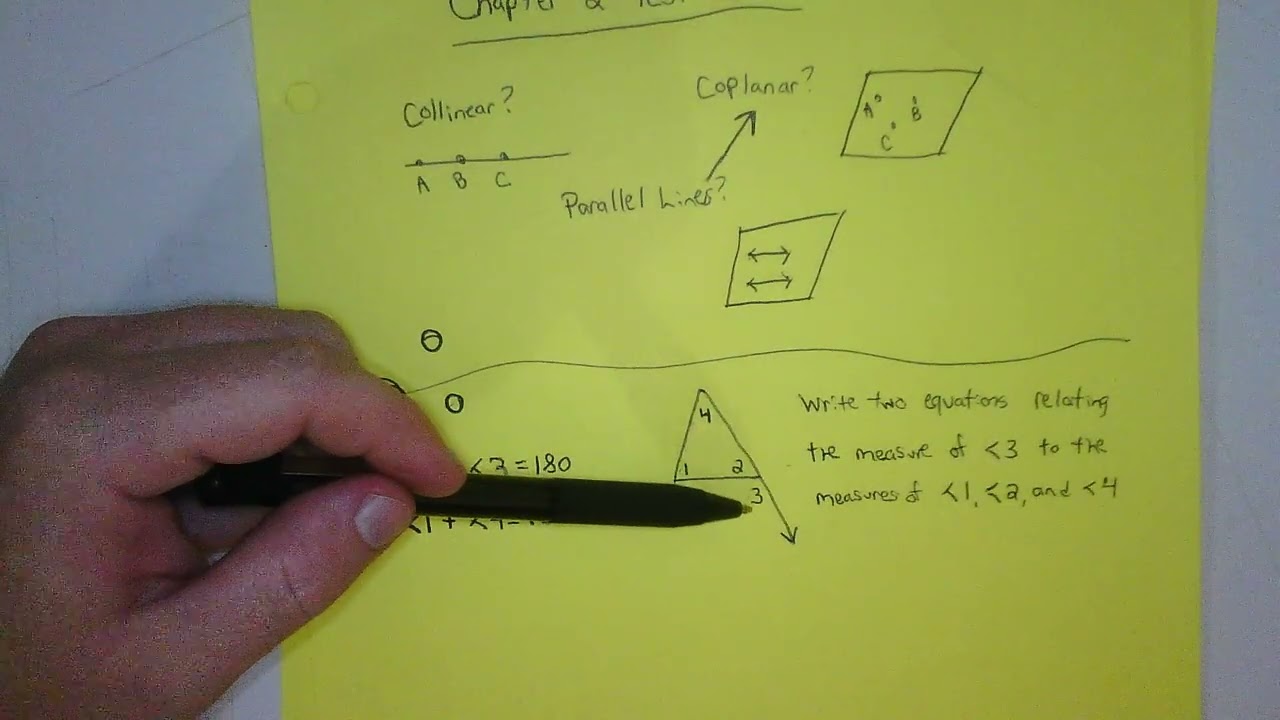 Chapter 2 Test
Collinear?
A B C
Coplanar?
A B
C
Parallel Lines?
4
1 2
3
Write two equations relating
the measure of <3 to the
measures of <1, <2, and <4
<3 = 180
<1 + <4 =